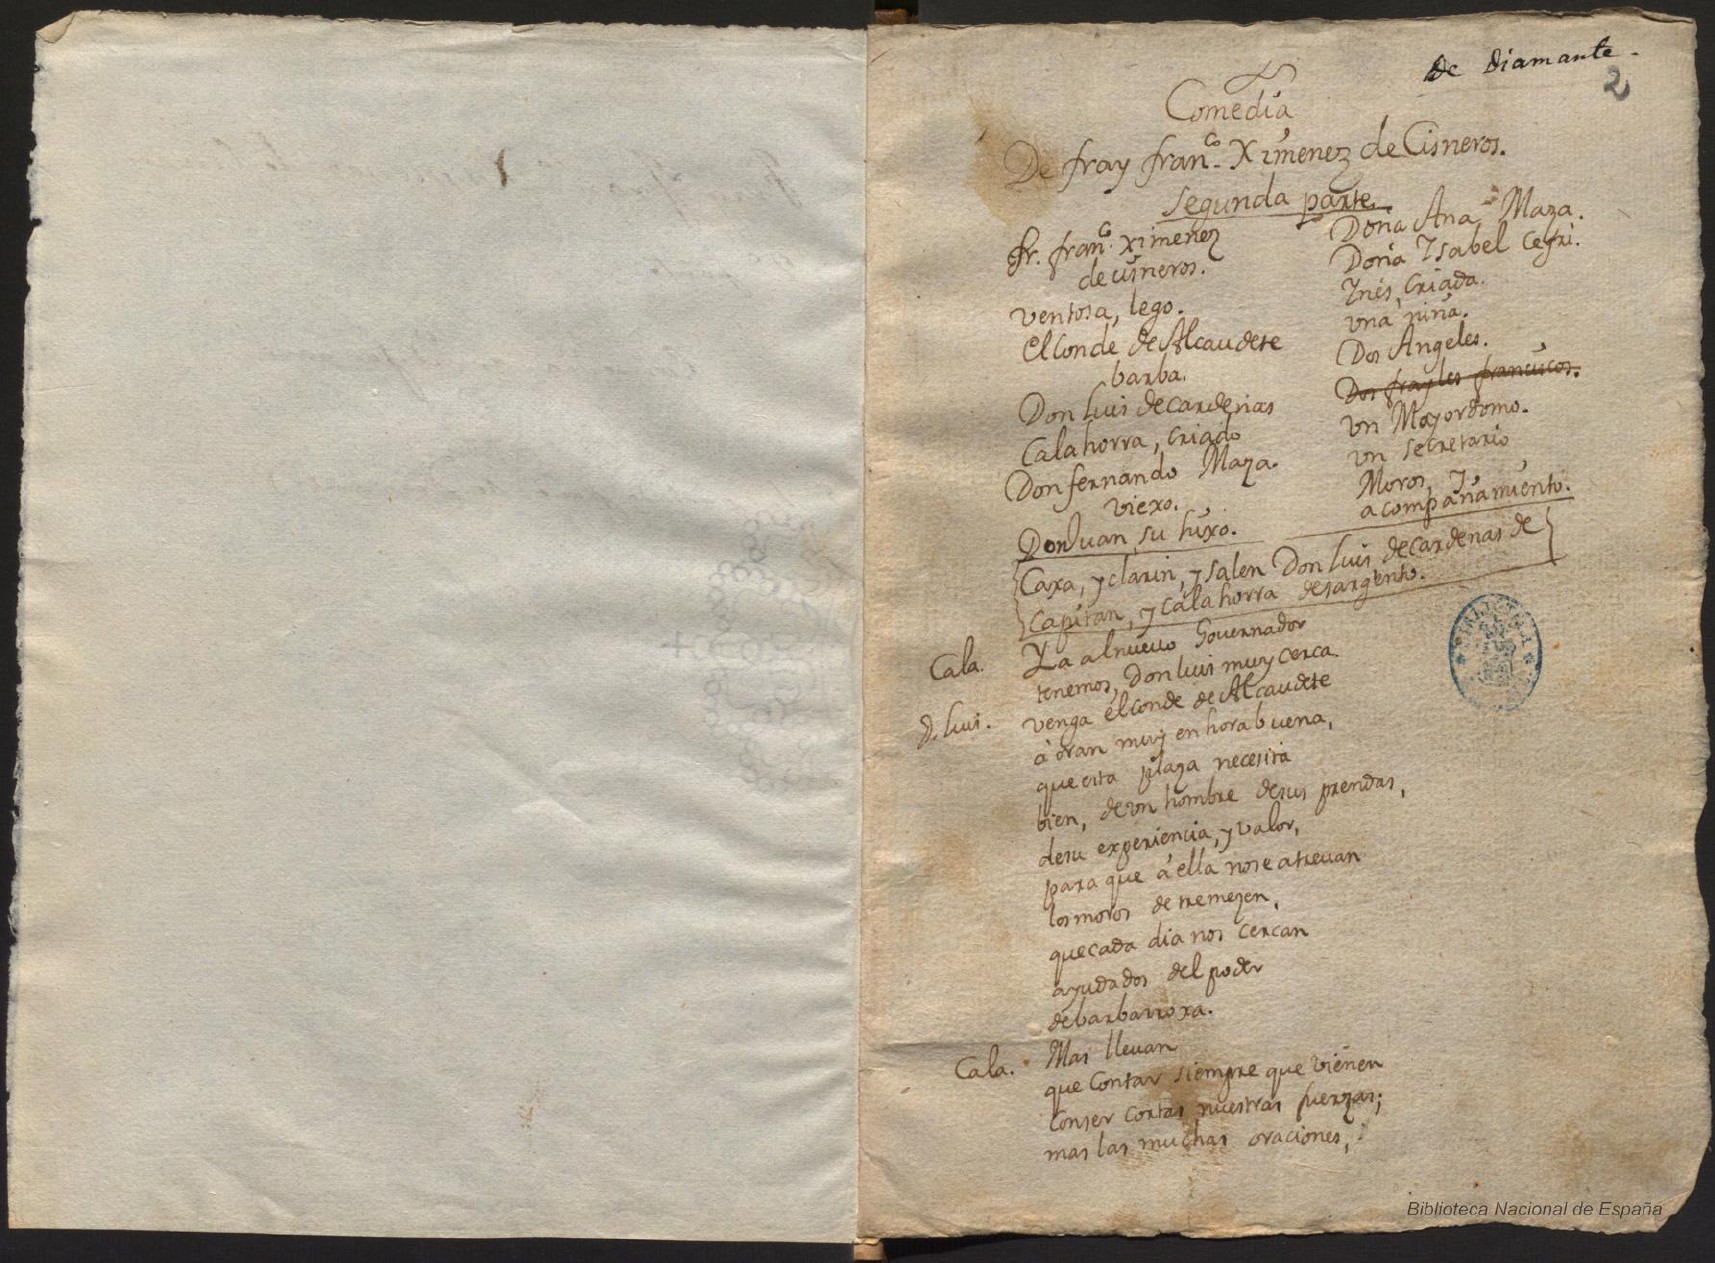 de Diamante.
2
Comedia
De fray fran.co Ximenez de Cisneros.
segunda parte
fr. fran.co ximenez
de cisneros.
ventosa, lego.
el Conde de Alcaudete
barba.
Don Luis de cardenas
Calahorra, criado
Don fernando Maza.
viexo.
Don Juan, su hixo.
Doña Ana Maza.
Doña Ysabel Cegri.
Ynés, Criada.
vna niña.
Dos Angeles.
Dos frayles franciscos.
vn Mayordomo.
vn secretario
Moros, Y
acompañamiento.
Caxa, y clarin, y salen Don Luis de cardenas de
Capitan, y Calahorra de sargento.
Cala. Ya al nueuo Gouernador
tenemos, Don luis muy cerca.
D. Luis. venga el conde de Alcaudete
à oran muy en hora buena,
que esta plaza necesita
bien, de vn hombre de sus prendas,
de su experiencia, y valor,
para que à ella no se atreuan
los moros de tremezen,
que cada dia nos cercan
ayudados del poder
de barbarroxa.
Cala. Mas lleuan
que Contar siempre que vienen
con ser cortas nuestras fuerzas;
mas las muchas oraciones,
Biblioteca Nacional de España